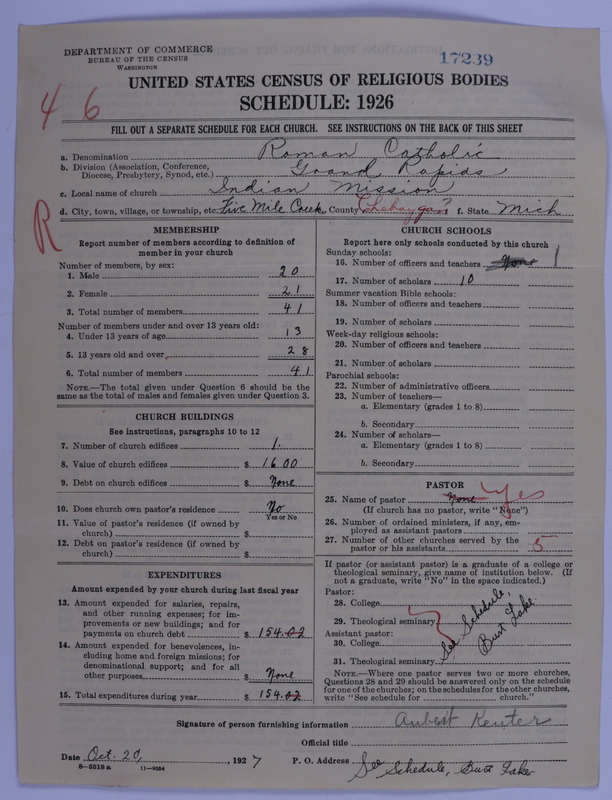 DEPARTMENT OF COMMERCE
BUREAU OF THE CENSUS
WASHINGTON
17239
UNITED STATES CENSUS OF RELIGIOUS BODIES
SCHEDULE: 1926
4 6
FILL OUT A SEPARATE SCHEDULE FOR EACH CHURCH. SEE INSTRUCTIONS ON THE BACK OF THIS SHEET
a. Denomination Roman Catholic
b. Division (Association, Conference, Diocese, Presbytery, Synod, etc.) Grand Rapids
c. Local name of church Indian Mission
d. City, town, village, or township, etc. Five Mile Creek County Cheboygan? f. State Mich
R
MEMBERSHIP
Report number of members according to definition of
member in your church
Number of members, by sex:
1. Male 20
2. Female 21
3. Total number of members 41
Number of members under and over 13 years old:
4. Under 13 years of age 13
5. 13 years old and over 28
6. Total number of members 41
NOTE.—The total given under Question 6 should be the
same as the total of males and females given under Question 3.
CHURCH BUILDINGS
See instructions, paragraphs 10 to 12
7. Number of church edifices 1.
8. Value of church edifices $ 1600
9. Debt on church edifices $ None
10. Does church own pastor's residence? No
Yes or No
11. Value of pastor's residence (if owned by
church) $
12. Debt on pastor's residence (if owned by
church) $
EXPENDITURES
Amount expended by your church during last fiscal year
13. Amount expended for salaries, repairs,
and other running expenses; for im-
provements or new buildings; and for
payments on church debt $ 154.02
14. Amount expended for benevolences, in-
cluding home and foreign missions; for
denominational support; and for all
other purposes $ None
15. Total expenditures during year $ 154.02
CHURCH SCHOOLS
Report here only schools conducted by this church
Sunday schools:
16. Number of officers and teachers None 1
17. Number of scholars 10
Summer vacation Bible schools:
18. Number of officers and teachers
19. Number of scholars
Week-day religious schools:
20. Number of officers and teachers
21. Number of scholars
Parochial schools:
22. Number of administrative officers
23. Number of teachers—
a. Elementary (grades 1 to 8)
b. Secondary
24. Number of scholars—
a. Elementary (grades 1 to 8)
b. Secondary
PASTOR
25. Name of pastor None Yes
(If church has no pastor, write "None")
26. Number of ordained ministers, if any, em-
ployed as assistant pastors
27. Number of other churches served by the
pastor or his assistants 5
If pastor (or assistant pastor) is a graduate of a college or
theological seminary, give name of institution below. (If
not a graduate, write "No" in the space indicated.)
Pastor:
28. College
29. Theological seminary
Assistant pastor:
30. College
31. Theological seminary
See Schedule,
Burt Lake.
NOTE.—Where one pastor serves two or more churches,
Questions 28 and 29 should be answered only on the schedule
for one of the churches; on the schedules for the other churches,
write "See schedule for church."
Signature of person furnishing information Aubert Keuter
Official title
Date Oct. 20, 1927 P. O. Address See Schedule, Burt Lake
8—5518 a 11—9054